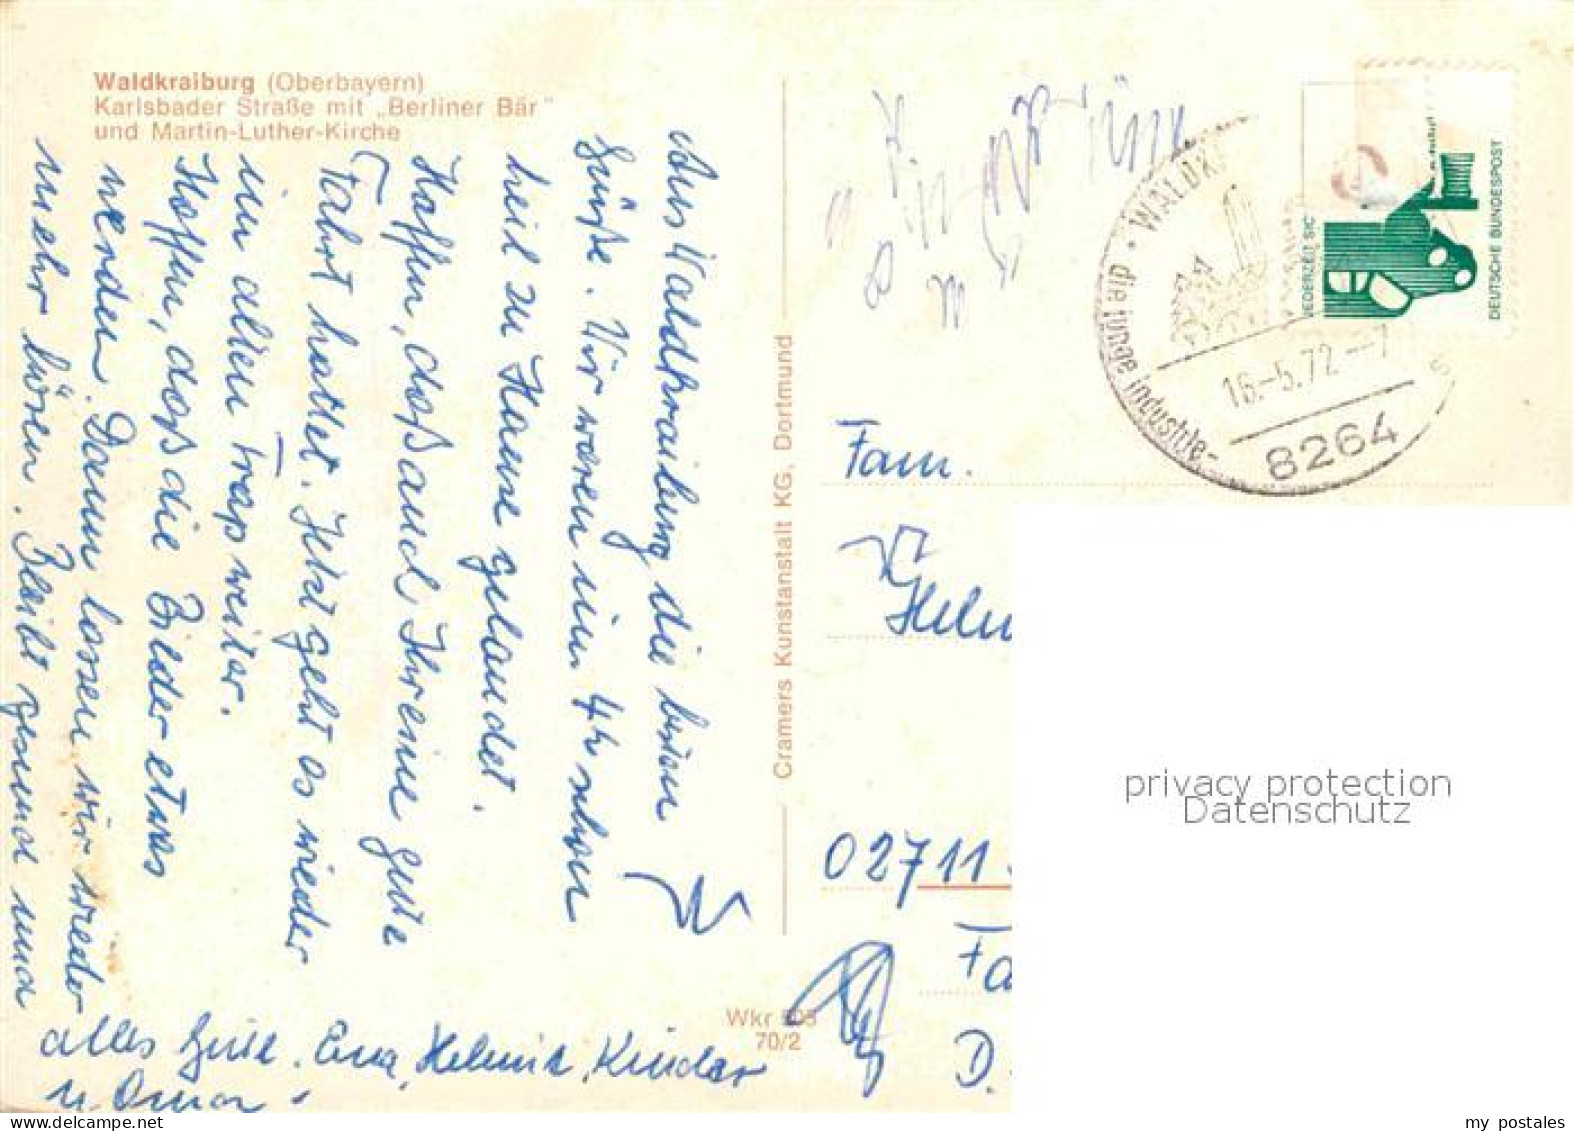 Waldkraiburg (Oberbayern)
Karlsbader Straße mit „Berliner Bär"
und Martin-Luther-Kirche
Aus Waldkraiburg die besten
Grüße. Wir waren um 4h schon
heil zu Hause gelandet.
Hoffen, daß auch Ihr eine gute
Fahrt hattet. Jetzt geht es wieder
im alten Trap weiter.
Hoffen, daß die Bilder etwas
werden. Dann lassen wir wieder
mehr hören. Bleibt gesund und
alles Gute. Eva, Helmut, Kinder
u. Omar
Cramers Kunstanstalt KG, Dortmund
Wkr 503
70/2
WALDKR
die junge Industrie-
16.-5.72--7
8264
JEDERZEIT SIC
DEUTSCHE BUNDESPOST
Fam.
Helm
02711
Fa
D.
privacy protection
Datenschutz
my postales